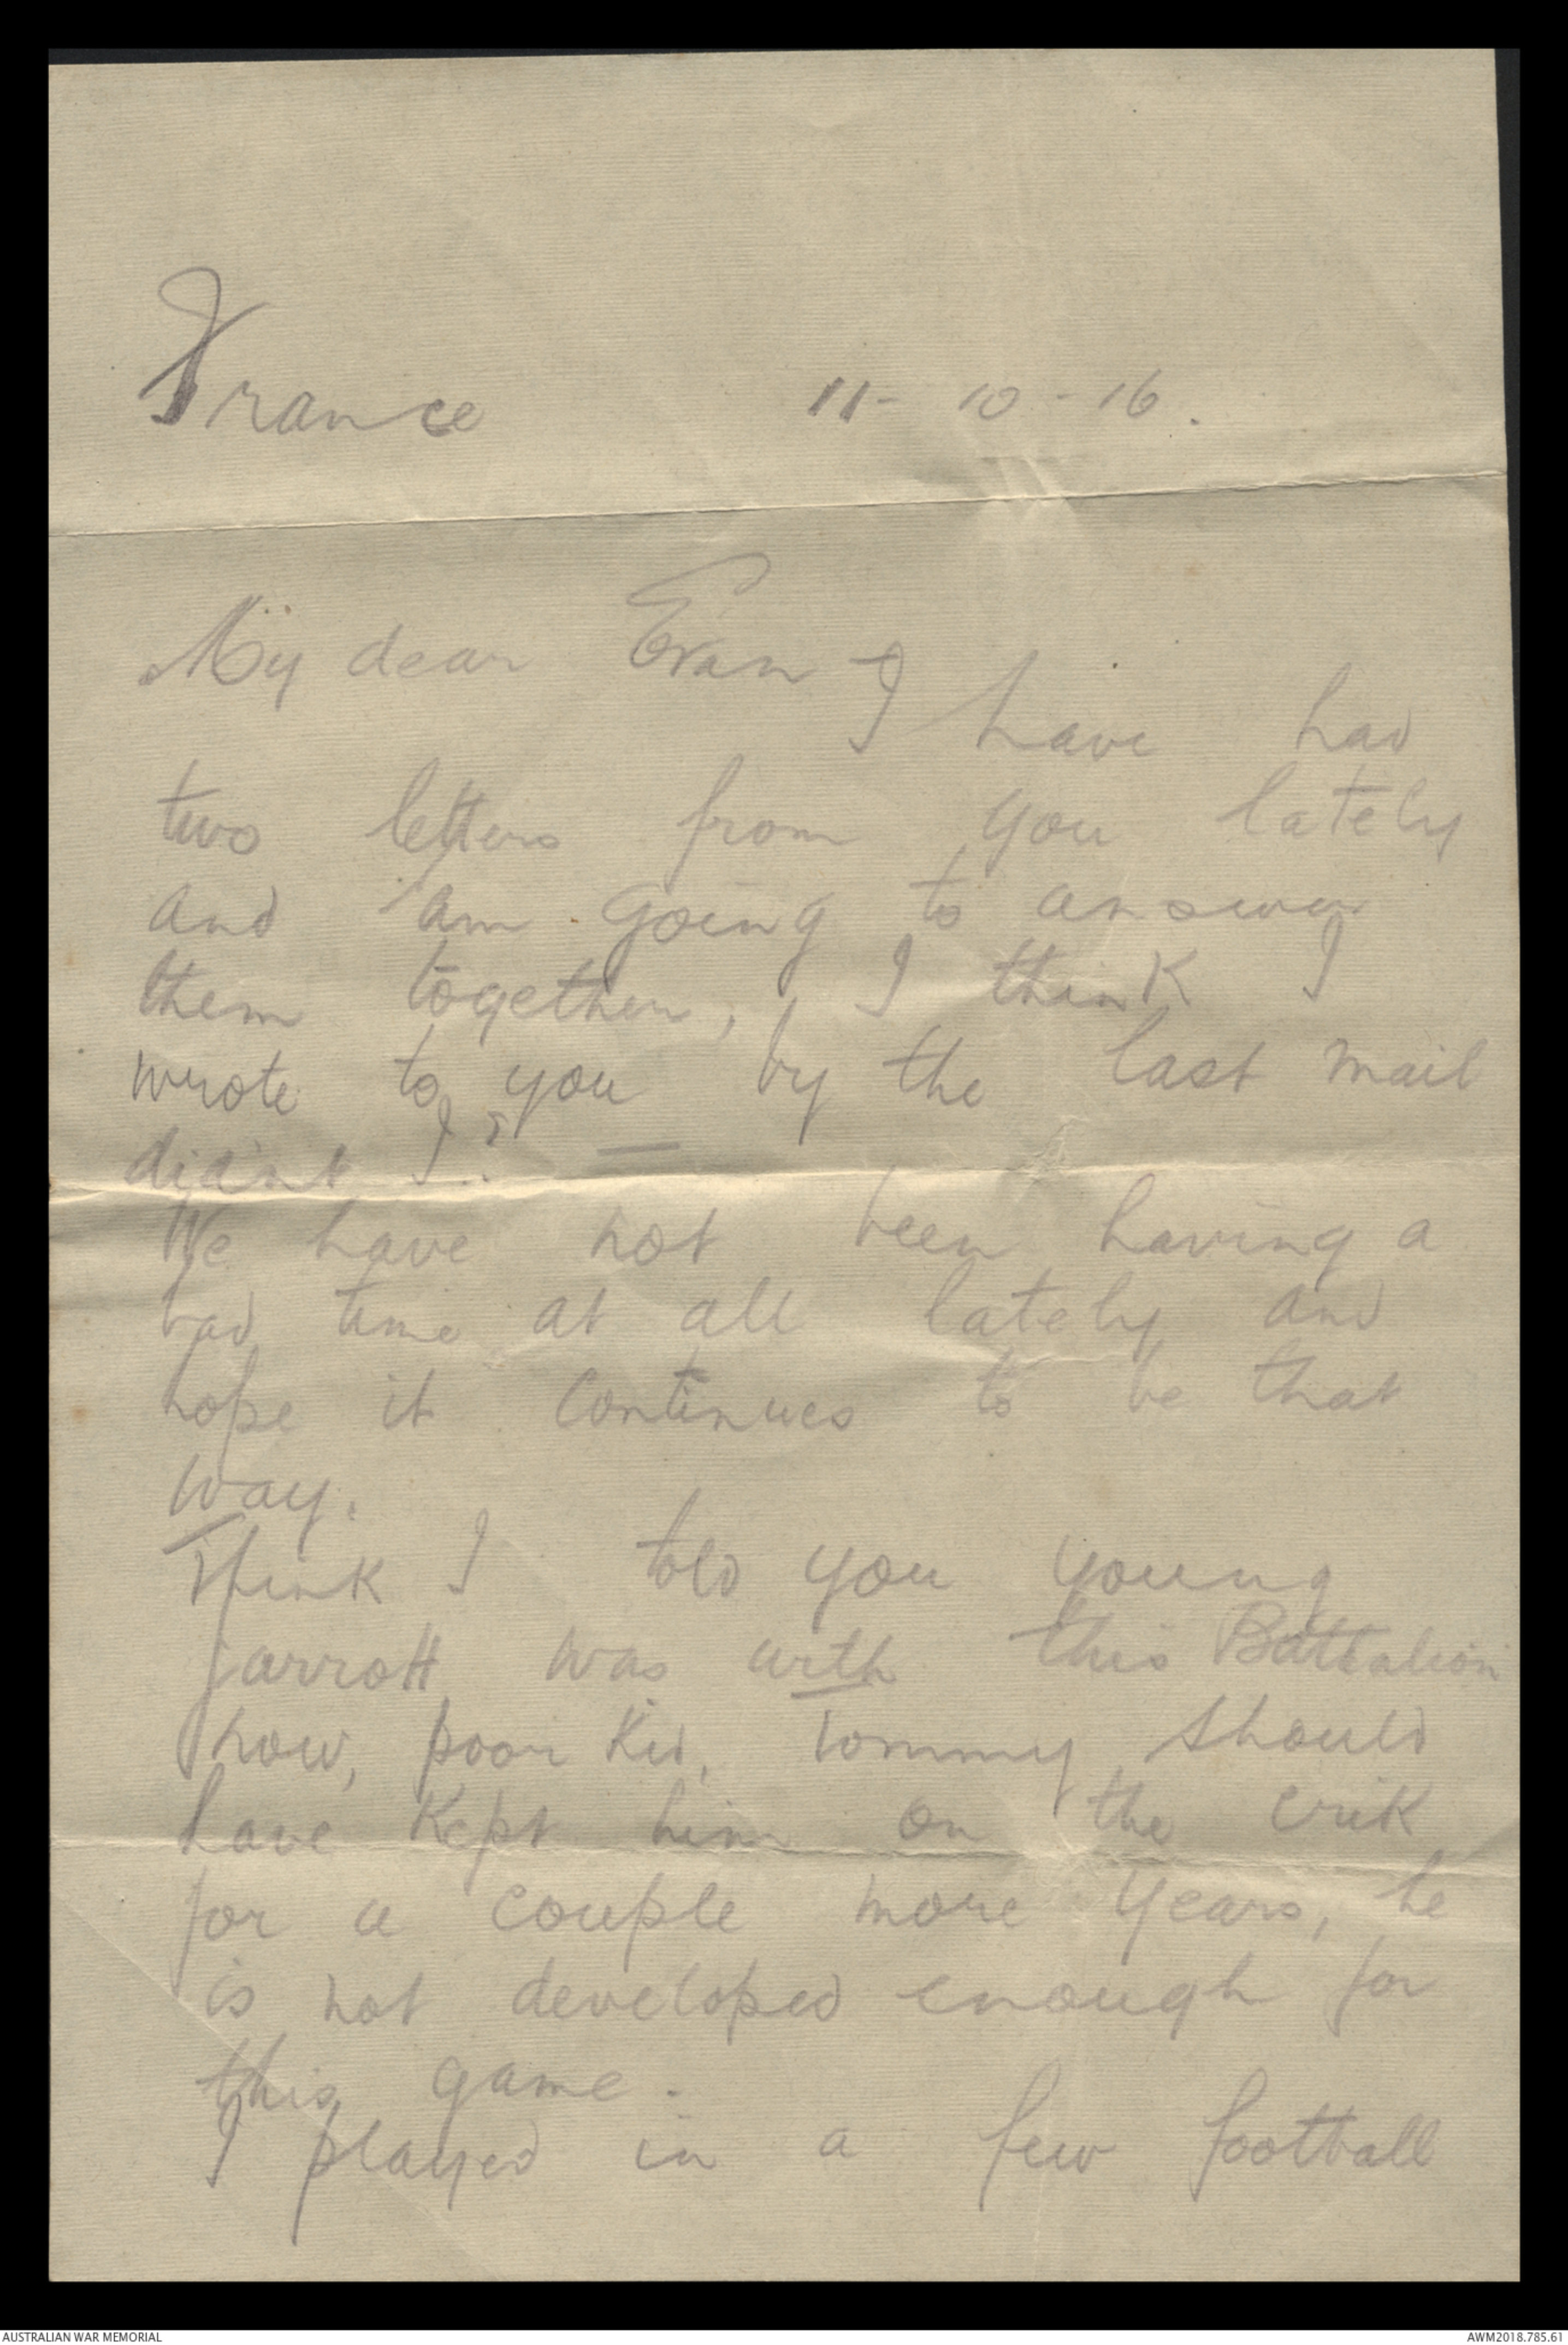 France 11- 10 - 16.
My dear Evan
I have had
two letters from you lately
and am going to answer
them together, I think I
wrote to you by the last mail
didnt I? —
We have not been having a
bad time at all lately and
hope it continues to be that
way.
Think I told you young
Jarrott was with this Battalion
now, poor Kid, Tommy should
have Kept him on the crik
for a couple more years, he
is not developed enough for
this game.
I played in a few football
AUSTRALIAN WAR MEMORIAL AWM2018.785.61